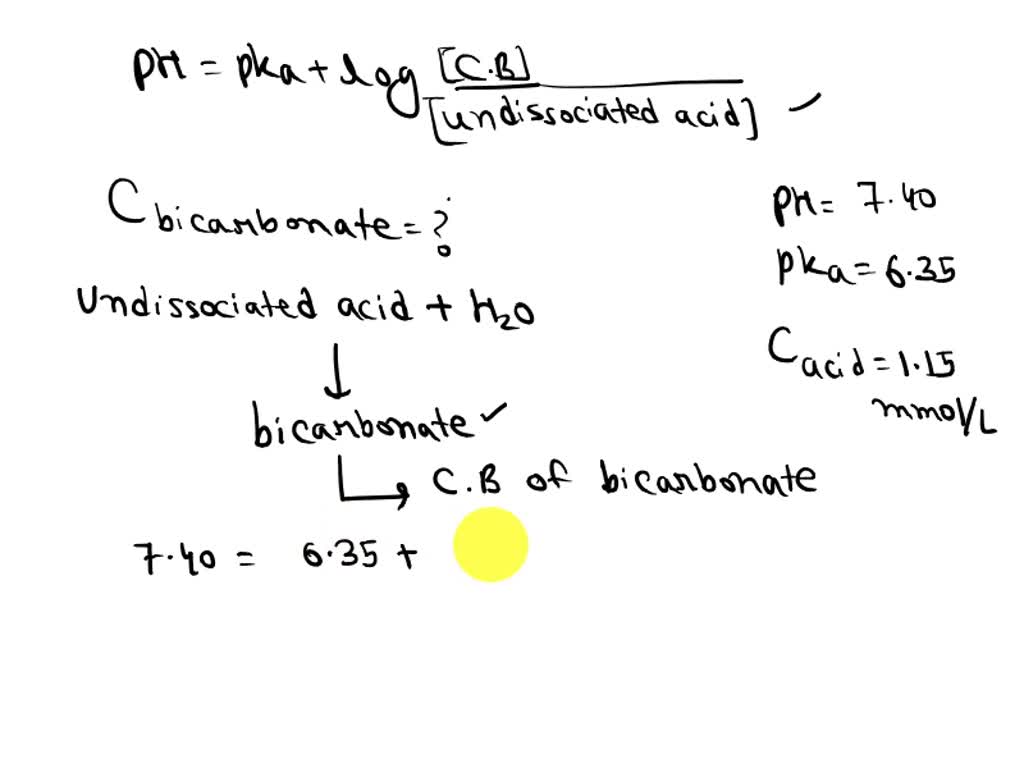 pH = pka + log [C.B] / [undissociated acid] ✓
C bicarbonate = ?
pH = 7.40
pka = 6.35
Undissociated acid + H₂O
C acid = 1.15
mmol/L
↓
bicarbonate ✓
↳ C.B of bicarbonate
7.40 = 6.35 +